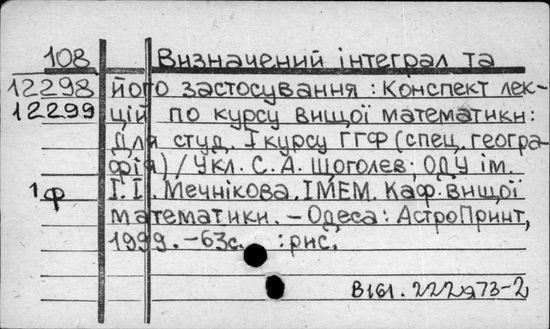 108 Визначений інтеграл та
12298 його застосування : Конспект лек-
12299 цій по курсу вищої математики:
Для студ. I курсу ГГФ (спец. геогра-
фія) / Укл. С. А. Щоголєв; ОДУ ім.
1ф І. І. Мечнікова. ІМЕМ. Каф. вищої
математики. – Одеса : АстроПринт,
1999. – 63с. : рис.
В161.222я73-2